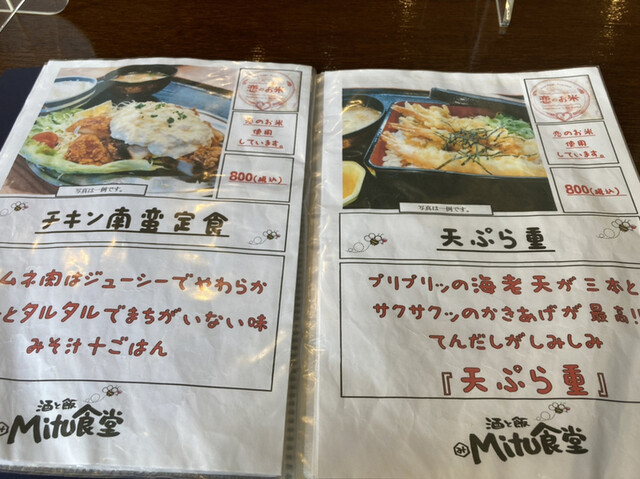 恋のお米
恋のお米
使用
しています。
800(税込)
写真は一例です。
チキン南蛮定食
ムネ肉はジューシーでやわらか
とタルタルでまちがいない味
みそ汁+ごはん
酒と飯
み Mitu食堂
恋のお米
恋のお米
使用
しています。
800(税込)
写真は一例です。
天ぷら重
プリプリッの海老天が三本と
サクサクッのかきあげが最高!!
てんだしがしみしみ
『天ぷら重』
酒と飯
み Mitu食堂